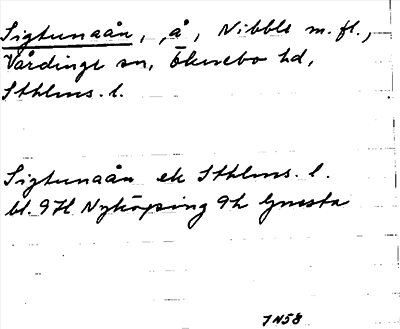 Sigtunaån, å, Nibble m.fl.,
Vårdinge sn, Öknebo hd,
Sthlms. l.
Sigtunaån ek Sthlms. l.
bl. 9H Nyköping 9h Gnesta
JN58